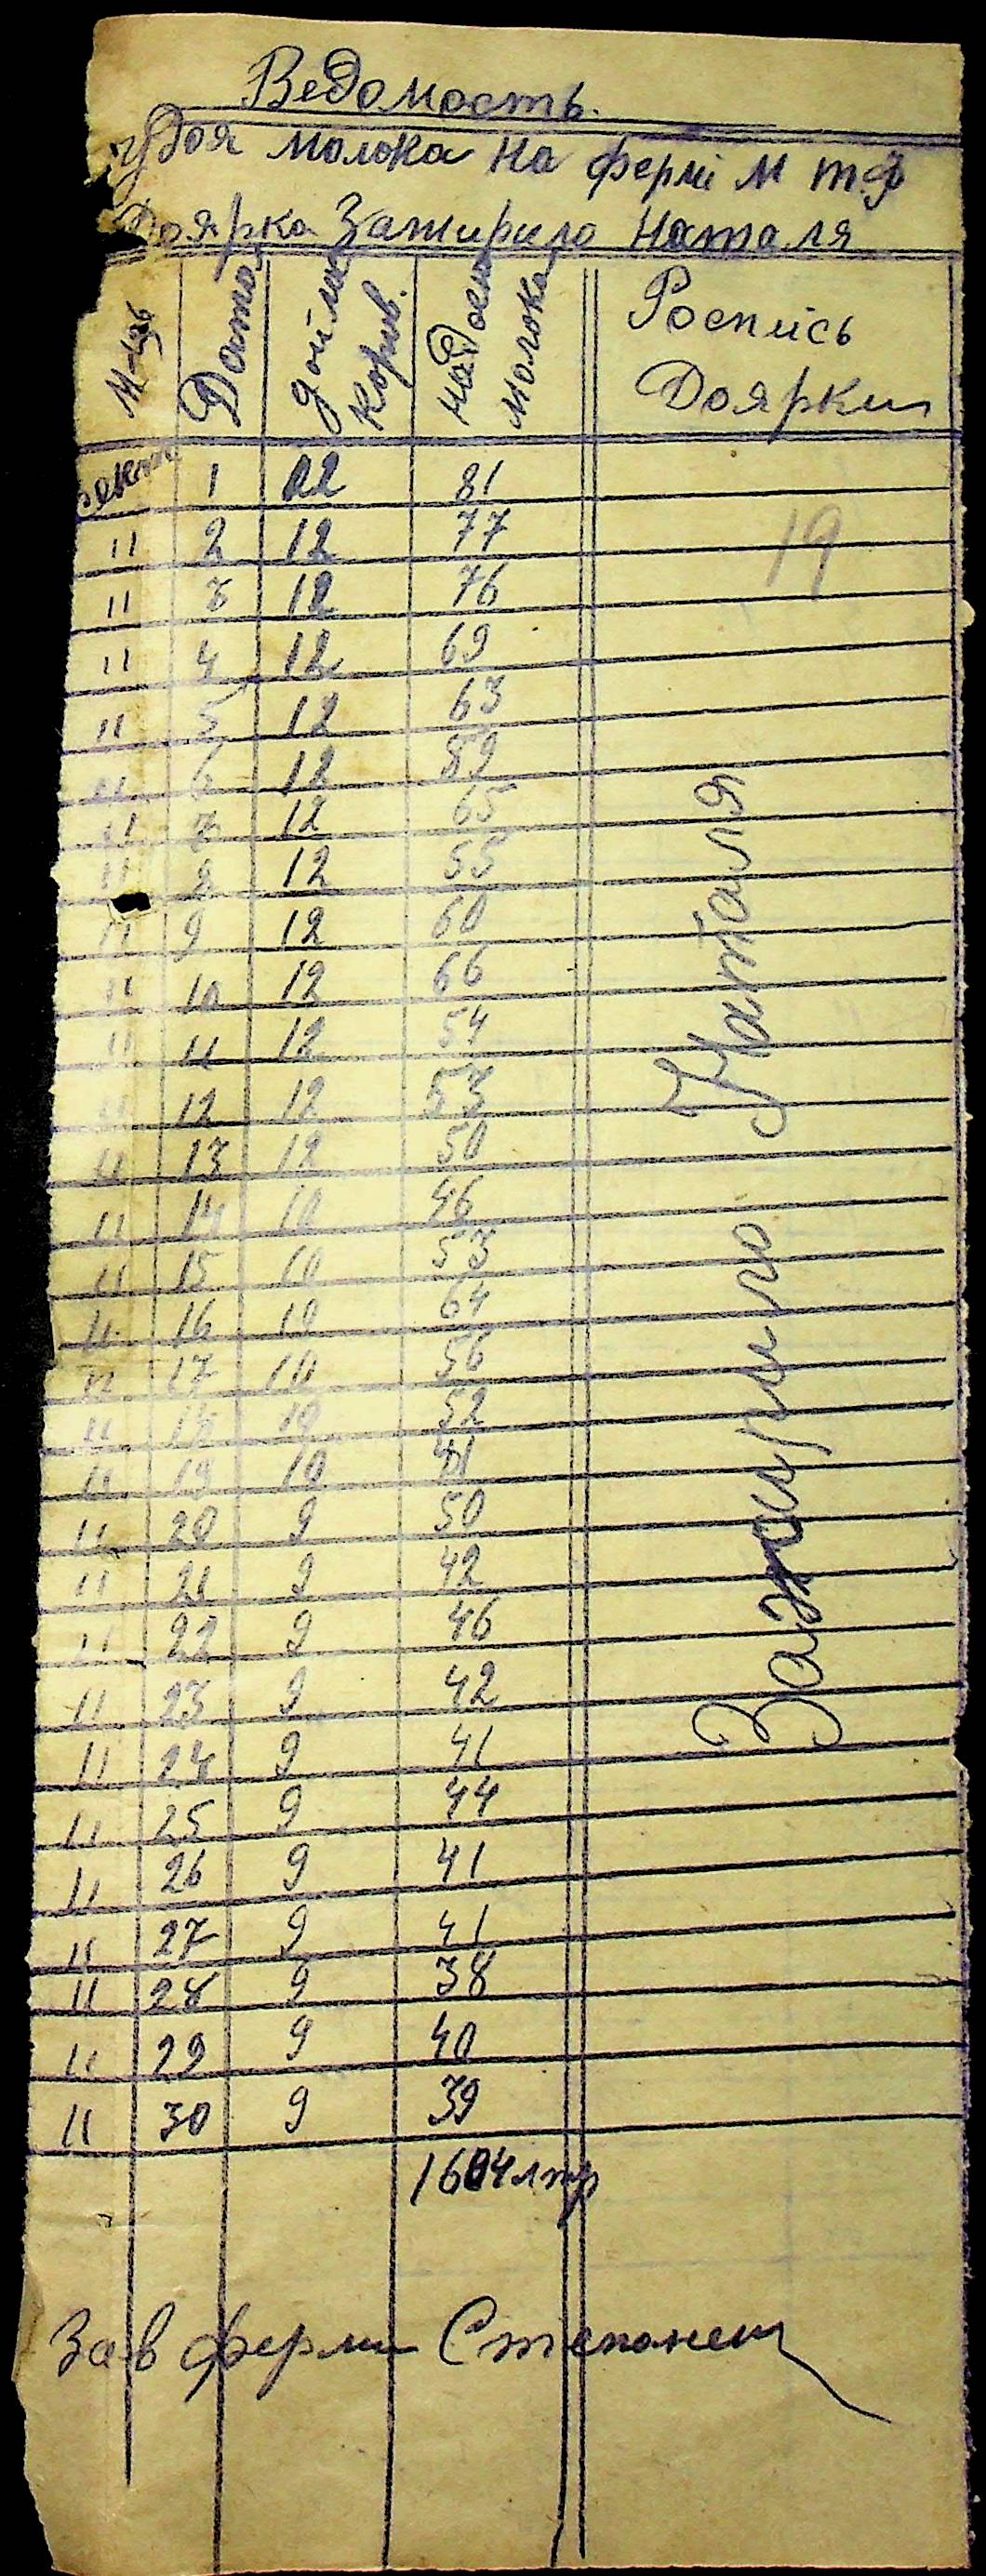 Ведомость.
удоя молока на ферми М т.ф
Доярка Зажирило Наталя
М-ць Дата дойла Корив. надоено молока Роспись Доярки
1 12 81
11 2 12 77 19
11 3 12 76
11 4 12 69
11 5 12 63
11 6 12 59
11 7 12 65
11 8 12 55
11 9 12 60
11 10 12 66
11 11 12 54
11 12 12 53
11 13 12 50
11 14 10 46
11 15 10 53
11 16 10 64
11 17 10 56
11 18 10 52
11 19 10 41
11 20 9 50
11 21 9 42
11 22 9 46
11 23 9 42
11 24 9 41
11 25 9 44
11 26 9 41
11 27 9 41
11 28 9 38
11 29 9 40
11 30 9 39
Зажирило Наталя
1604 литр
Зав ферми Степанец